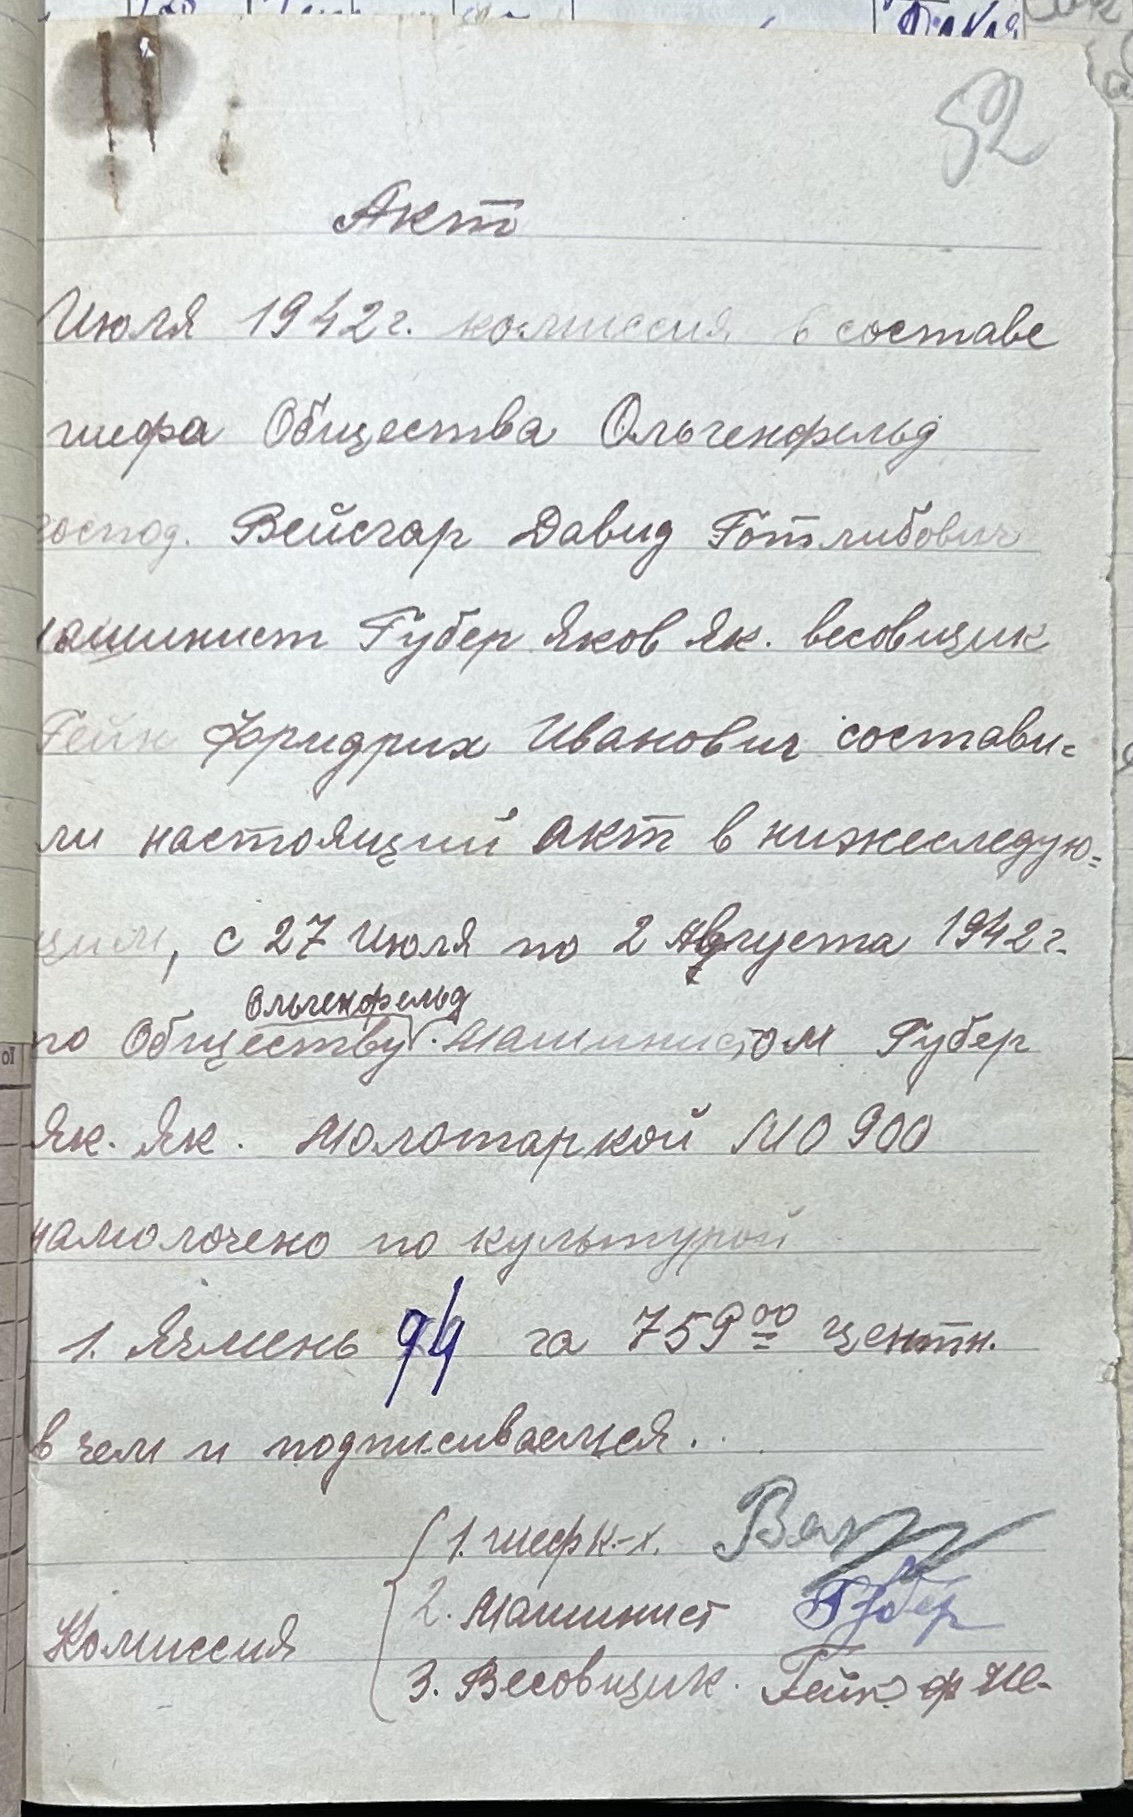 52
Акт
Июля 1942 г. комиссия в составе
шефа Общества Ольгенфельд
господ. Вейсгар Давид Готлибович
машинист Губер Яков Як. весовщик
Гейн Фридрих Иванович состави=
ли настоящий акт в нижеследую=
щим, с 27 Июля по 2 Августа 1942 г.
Ольгенфельд
по Обществу. Машинистом Губер
Як. Як. Молотаркой МО 900
намолочено по культурой
1. Ячмень 94 га 759 00 центн.
в чем и подписиваемся.
Комиссия
1. шеф к-х.
2. Машинист Губер
3. Весовщик. Гейн Ф